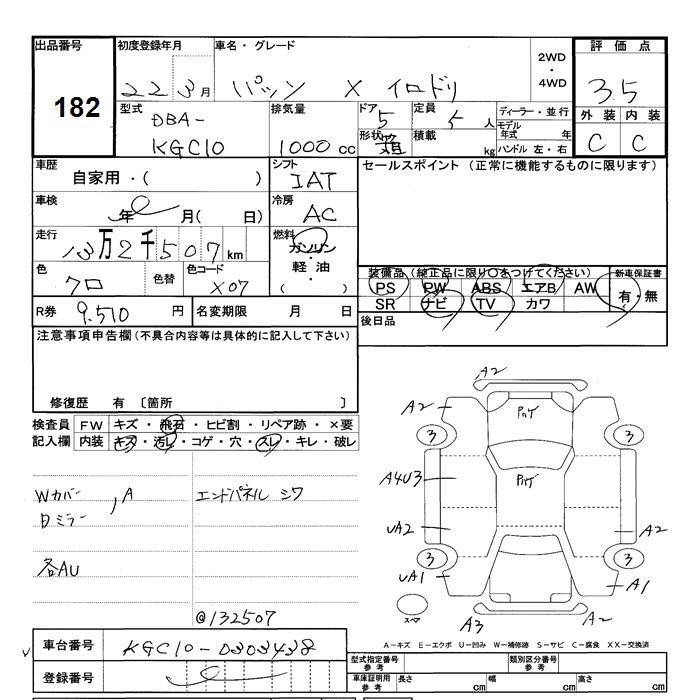 出品番号 182
初度登録年月 22 3月
車名・グレード パッソ X イロドリ
2WD・4WD
評価点 3.5
外装 C 内装 C
型式 DBA-KGC10
排気量 1000cc
ドア 5
形状 箱
定員 5人
積載 kg
ディーラー・並行
モデル年式 年
ハンドル 左・右
車歴 自家用・( )
シフト IAT
セールスポイント (正常に機能するものに限ります)
車検 年 月( 日)
冷房 AC
走行 13万2千507km
燃料 ガソリン・軽油・( )
色 クロ 色替 色コード X07
装備品(純正品に限り○をつけてください) 新車保証書
PS PW ABS エアB AW 有・無
SR ナビ TV カワ
R券 9.510円 名変期限 月 日
後日品
注意事項申告欄(不具合内容等は具体的に記入して下さい)
修復歴 有 〔箇所 〕
検査員記入欄 FW キズ・飛石・ヒビ割・リペア跡・×要
内装 キズ・汚レ・コゲ・穴・スレ・キレ・破レ
Wカバー
日ミラー , A
エンドパネル シワ
各AU
@132507
A2
A2
3 3
A4U3
UA2 A2
3 3
UA1 A1
A3 A2
スペア
A-キズ E-エクボ U-凹み W-補修跡 S-サビ C-腐食 XX-交換済
車台番号 KGC10-0303438
登録番号
型式指定番号 参考 類別区分番号 参考
車庫証明用 参考 長さ cm 幅 cm 高さ cm